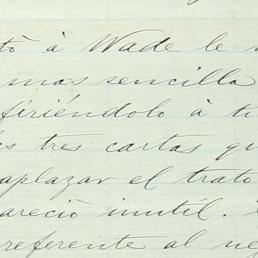 tò à Wade le
mas sencilla
firiéndolo à tu
s tres cartas qu
aplazar el trato
areció inutil.
referente al ne